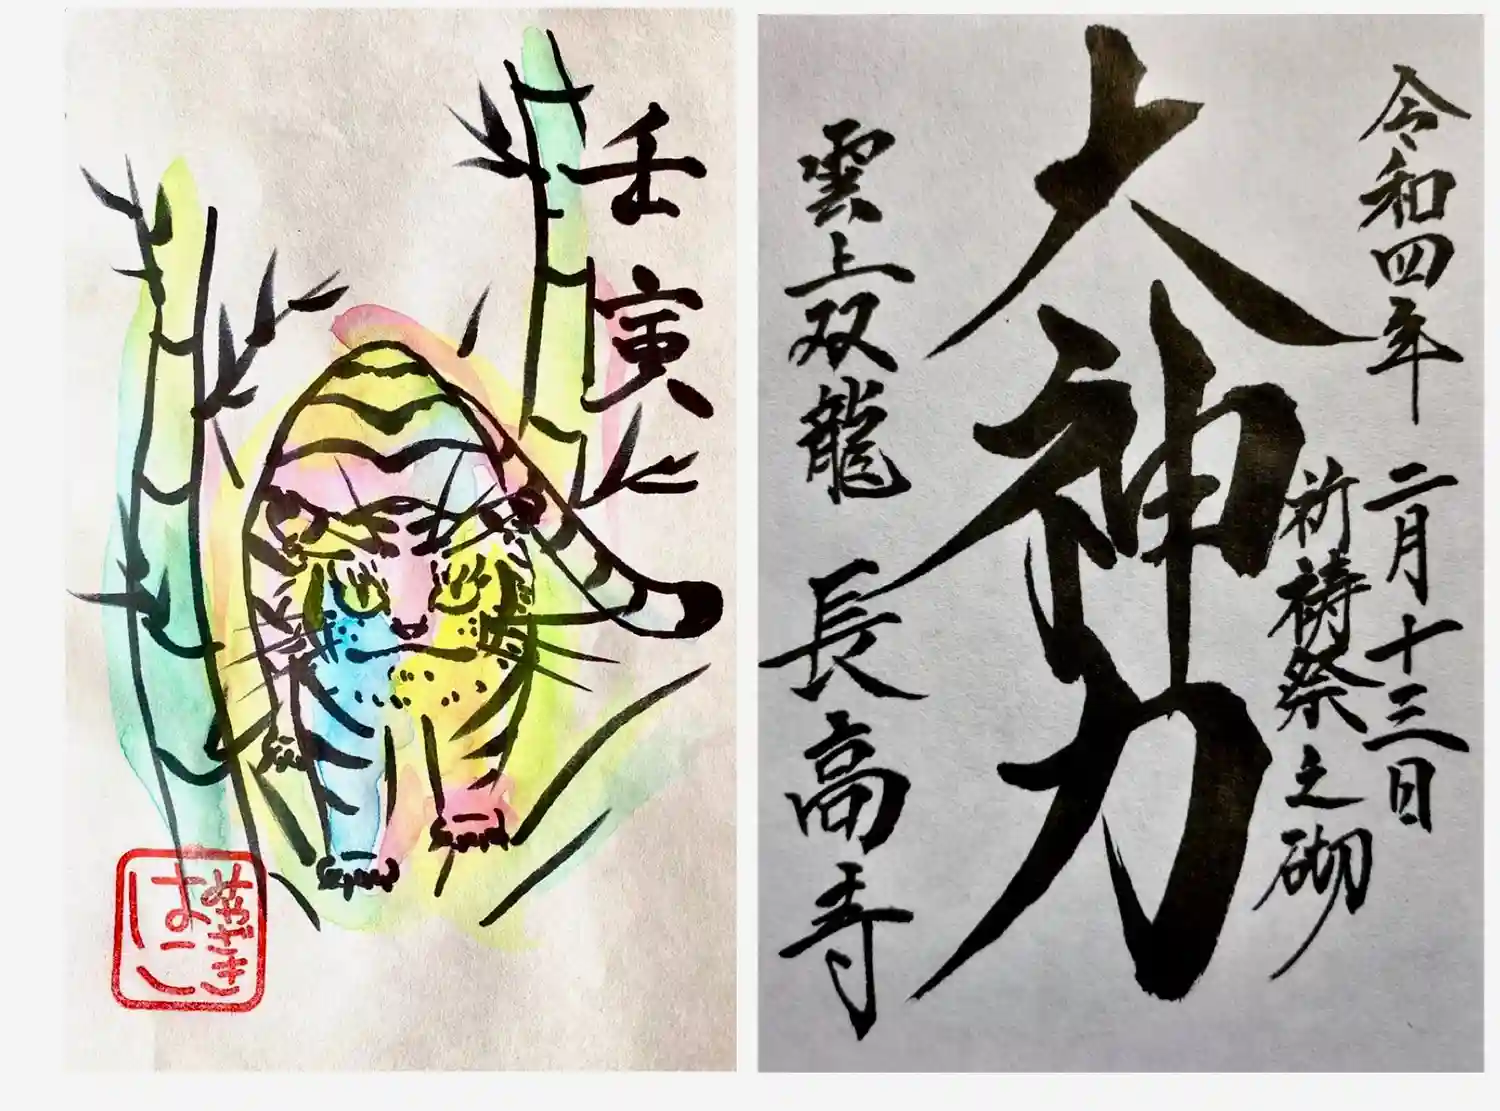 壬寅
みやざき
はにこ
令和四年 二月十三日
祈祷祭之砌
大神力
雲上双龍 長高寺